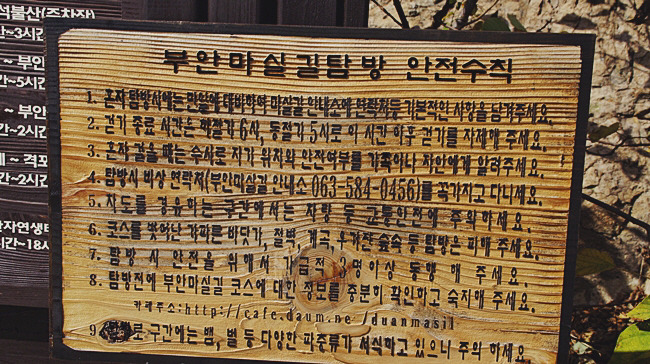 석불산(주차장)
간~3시간
~ 부안
간~5시간
~ 부안
간~2시간
~ 격포
간~2시간
간~18시
부안마실길탐방 안전수칙
1. 혼자 탐방시에는 만일에 대비하여 마실길 안내소에 연락처등 기본적인 사항을 남겨주세요.
2. 걷기 종료 시간은 해절기 6시, 동절기 5시로 이 시간 이후 걷기를 자제해 주세요.
3. 혼자 걸을 때는 수시로 자기 위치와 안전여부를 가족이나 지인에게 알려주세요.
4. 탐방시 비상 연락처(부안마실길 안내소 063-584-0456)를 꼭가지고 다니세요.
5. 차도를 경유하는 구간에서는 차량 등 교통안전에 주의하세요.
6. 코스를 벗어난 가파른 바닷가, 절벽, 계곡, 우가진 숲속 등 탐방은 피해 주세요.
7. 탐방 시 안전을 위해서 가급적 3명이상 동행 해 주세요.
8. 탐방전에 부안마실길 코스에 대한 정보를 충분히 확인하고 숙지해 주세요.
카페주소:http://cafe.daum.ne /duanmasil
9 로 구간에는 뱀, 벌 등 다양한 파충류가 서식하고 있으니 주의 하세요.